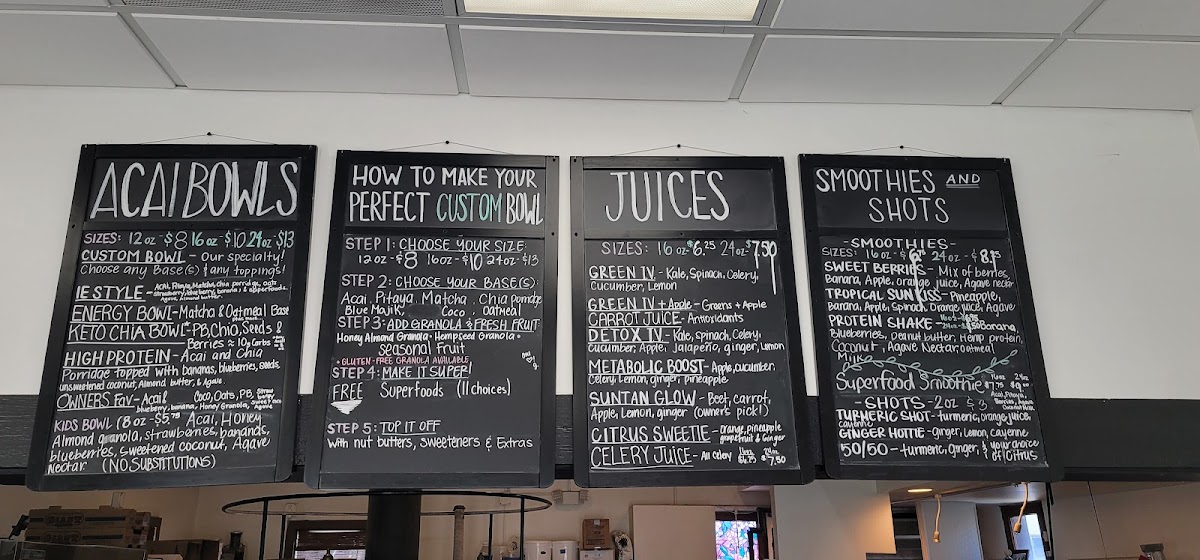 ACAI BOWLS
SIZES: 12oz-$8 16oz-$10 24oz-$13
CUSTOM BOWL - Our specialty!
Choose any Base(s) & any toppings!
IE STYLE - Acai, Pitaya, Matcha, chia porridge, oats
strawberry, blueberry, banana, & superfoods.
Agave, Almond butter.
ENERGY BOWL - Matcha & Oatmeal Base
KETO CHIA BOWL - PB, Chio, Seeds &
Berries ≈ 10g carbs
HIGH PROTEIN - Acai and Chia
Porridge topped with bananas, blueberries, seeds,
unsweetened coconut, Almond butter, & Agave.
OWNERS FAV - Acai & Coco, Oats, PB,
blueberry, banana, Honey Granola, Agave
KIDS BOWL 8oz-$5.75 Acai, Honey
Almond granola, strawberries, bananas,
blueberries, sweetened coconut, Agave
Nectar (NO SUBSTITUTIONS)
HOW TO MAKE YOUR
PERFECT CUSTOM BOWL
STEP 1: CHOOSE YOUR SIZE:
12oz-$8 16oz-$10 24oz-$13
STEP 2: CHOOSE YOUR BASE(S):
Acai, Pitaya, Matcha, Chia porridge
Blue Majik, Coco, Oatmeal
STEP 3: ADD GRANOLA & FRESH FRUIT
Honey Almond Granola • Hempseed Granola •
Seasonal Fruit
• GLUTEN-FREE GRANOLA AVAILABLE
STEP 4: MAKE IT SUPER!
FREE Superfoods (11 choices)
STEP 5: TOP IT OFF
with nut butters, sweeteners & Extras
JUICES
SIZES: 16oz-$6.25 24oz-$7.50
GREEN IV - Kale, Spinach, Celery,
Cucumber, Lemon
GREEN IV + Apple - Greens + Apple
CARROT JUICE - Antioxidants
DETOX IV - Kale, spinach, Celery,
cucumber, Apple, Jalapeño, ginger, Lemon
METABOLIC BOOST - Apple, cucumber,
Celery, Lemon, ginger, pineapple
SUNTAN GLOW - Beet, carrot,
Apple, Lemon, ginger (owner's pick!)
CITRUS SWEETIE - Orange, pineapple
grapefruit & Ginger
CELERY JUICE - All Celery 16oz $6.75 24oz $7.50
SMOOTHIES AND
SHOTS
-SMOOTHIES-
SIZES: 16oz-$6 24oz-$8.75
SWEET BERRIES - Mix of berries,
Banana, Apple, orange juice, Agave nectar
TROPICAL SUN KISS - Pineapple,
Banana, Apple, Spinach, Orange juice, Agave
PROTEIN SHAKE - Banana,
Blueberries, Peanut butter, Hemp protein,
Coconut, Agave Nectar, oatmeal
Milk
Superfood Smoothie 16oz $7.75 24oz $9
Acai, Pitaya,
-SHOTS- 2oz $3
TURMERIC SHOT - turmeric, orange juice,
cayenne
GINGER HOTTIE - ginger, Lemon, cayenne
50/50 - turmeric, ginger, & your choice
of Citrus